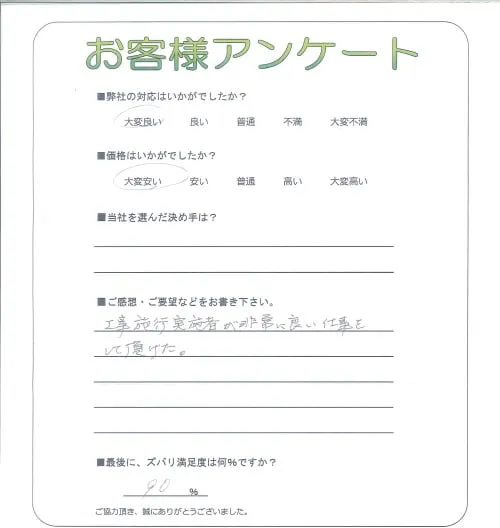 お客様アンケート
■弊社の対応はいかがでしたか?
大変良い 良い 普通 不満 大変不満
■価格はいかがでしたか?
大変安い 安い 普通 高い 大変高い
■当社を選んだ決め手は?
■ご感想・ご要望などをお書き下さい。
工事施行実施者が非常に良い仕事を
して頂けた。
■最後に、ズバリ満足度は何%ですか?
90 %
ご協力頂き、誠にありがとうございました。